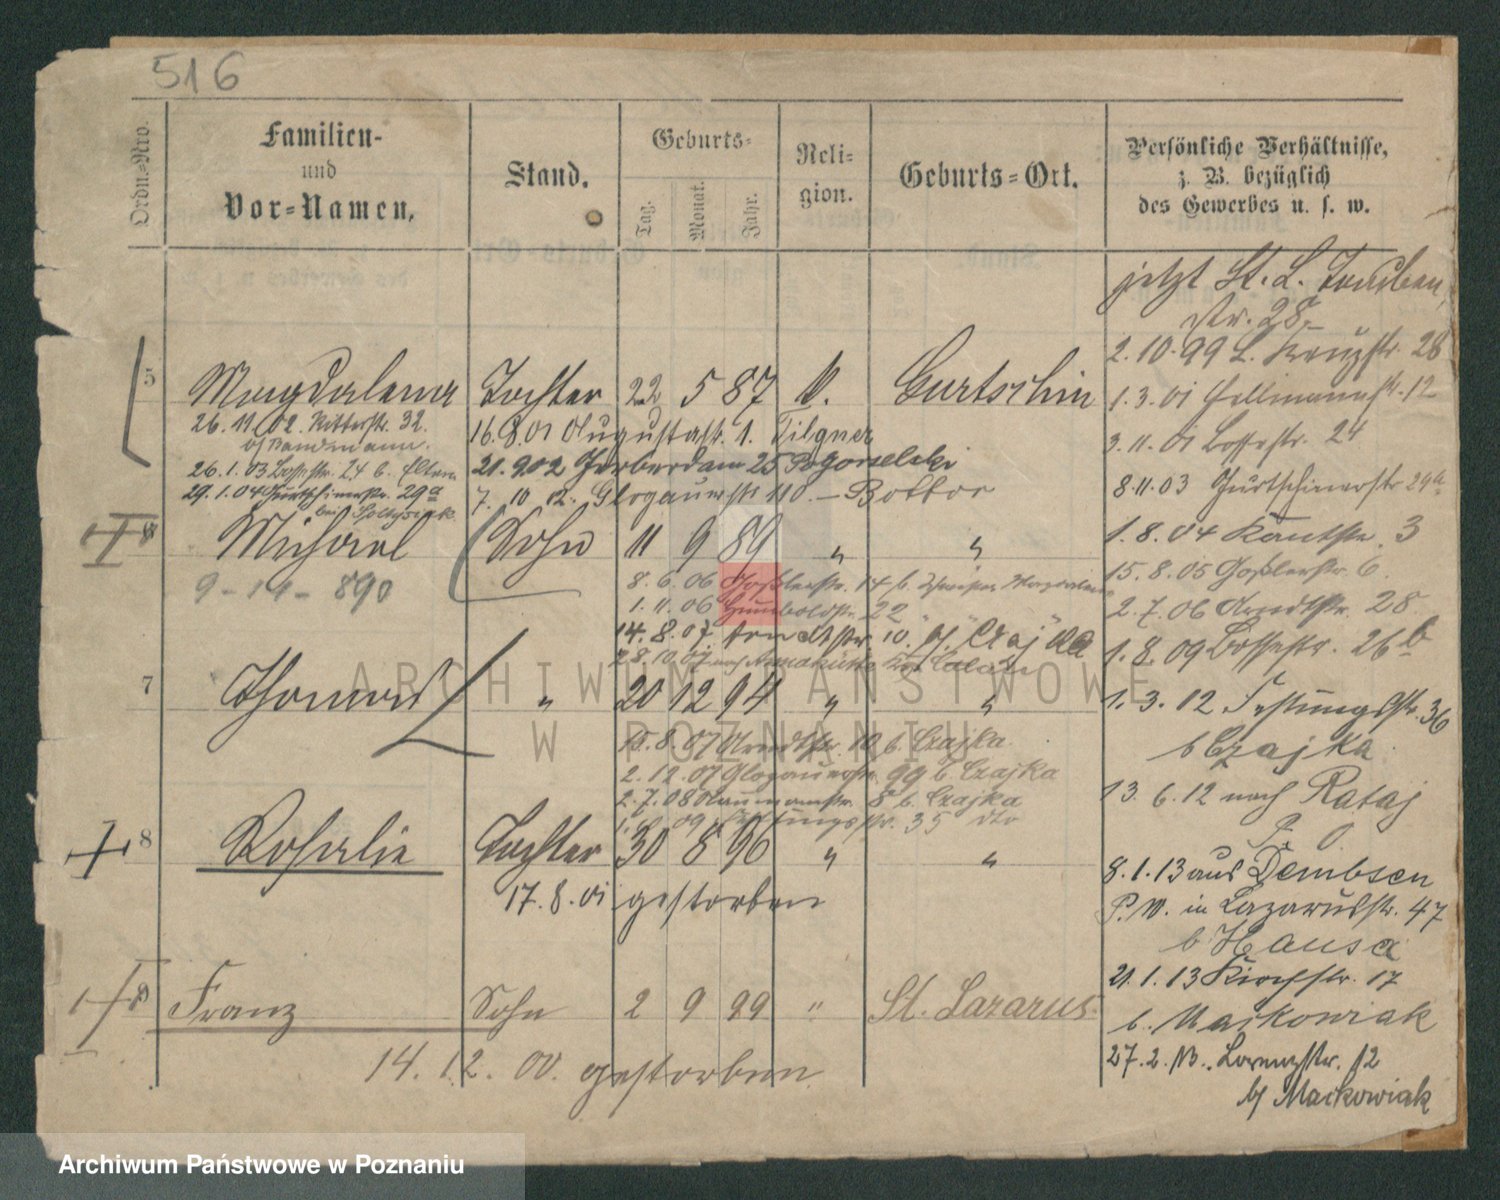 516
Ordn.-Nro.
Familien-
und
Vor-Namen.
Stand.
Geburts-
Tag.
Monat.
Jahr.
Reli-
gion.
Geburts-Ort.
Persönliche Verhältnisse,
z. B. bezüglich
des Gewerbes u. s. w.
jetzt St. L.
Str. 28
2.10.99 L. Kreuzstr. 28
5 Magdalena Tochter 22 5 87 Gurtschin
1.3.01 12
26.11.02. Ritterstr. 32.
16.8.01 Augustastr. 1. Tilgner
3.11.01 Bossestr. 24
26.1.03 Bossestr. 24 b.
21.9.02 Gerberdamm 25 Pogorselski
29.1.04 Gurtschinerstr. 29a
7.10.12. Glogauerstr. 110. –
8.11.03 Gurtschinerstr. 29a
6 Michael Sohn 11 9 89 " "
1.8.04 Kantstr. 3
9-11-890
8.6.06 Goßlerstr. 14 b.
15.8.05 Goßlerstr. 6.
1.11.06 Humboldstr. 22
2.7.06 Arndtstr. 28.
14.8.07. Arndtstr. 10. bj Czajka
1.8.09 Bossestr. 26b
28.10.07 nach
7 Thomas " 20 12 94 " "
1.3.12 Festungsstr. 36
b Czajka
15.8.07 Arndtstr. 10 b. Czajka.
2.12.07 Glogauerstr. 99 b. Czajka
13.6.12 nach Rataj
2.7.08 Naumannstr. 8 b. Czajka
09 Festungsstr. 35 dto
8 Rosalie Tochter 30 8 96 " "
8.1.13 aus Dembsen
17.8.01 gestorben
P.W. in Lazarusstr. 47
b Hausa
21.1.13 Kirchstr. 17
9 Franz Sohn 2 9 99 " St. Lazarus.
b. Maikowiak
14.12.00. gestorben
27.2.13. Lorenzstr. 12
bj Maikowiak
ARCHIWUM PAŃSTWOWE
W POZNANIU
Archiwum Państwowe w Poznaniu